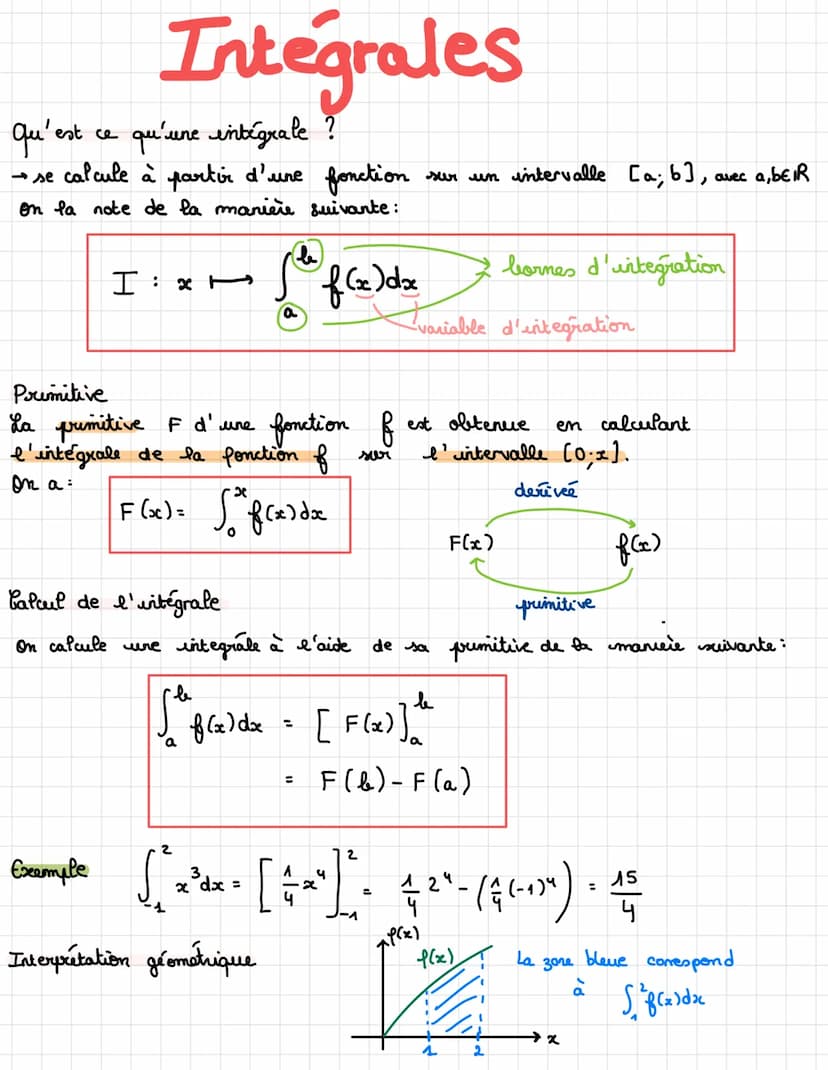 Intégrales
Qu'est ce qu'une intégrale ?
→ se calcule à partir d'une fonction sur un intervalle [a; b], avec a,b∈ℝ
On la note de la manière suivante :
I : x ⟼ ∫_a^b f(x)dx
bornes d'intégration
variable d'intégration
Primitive
La primitive F d'une fonction f est obtenue en calculant
l'intégrale de la fonction f sur l'intervalle [0;x].
On a :
F(x) = ∫_0^x f(x)dx
derivée
F(x) f(x)
primitive
Calcul de l'intégrale
On calcule une intégrale à l'aide de sa primitive de la manière suivante :
∫_a^b f(x)dx = [F(x)]_a^b
= F(b) - F(a)
Exemple ∫_{-1}^2 x³dx = [1/4 x⁴]_{-1}^2 = 1/4 2⁴ - (1/4 (-1)⁴) = 15/4
Interprétation géométrique
f(x)
f(x)
x
1 2
La zone bleue correspond
à ∫_1^2 f(x)dx